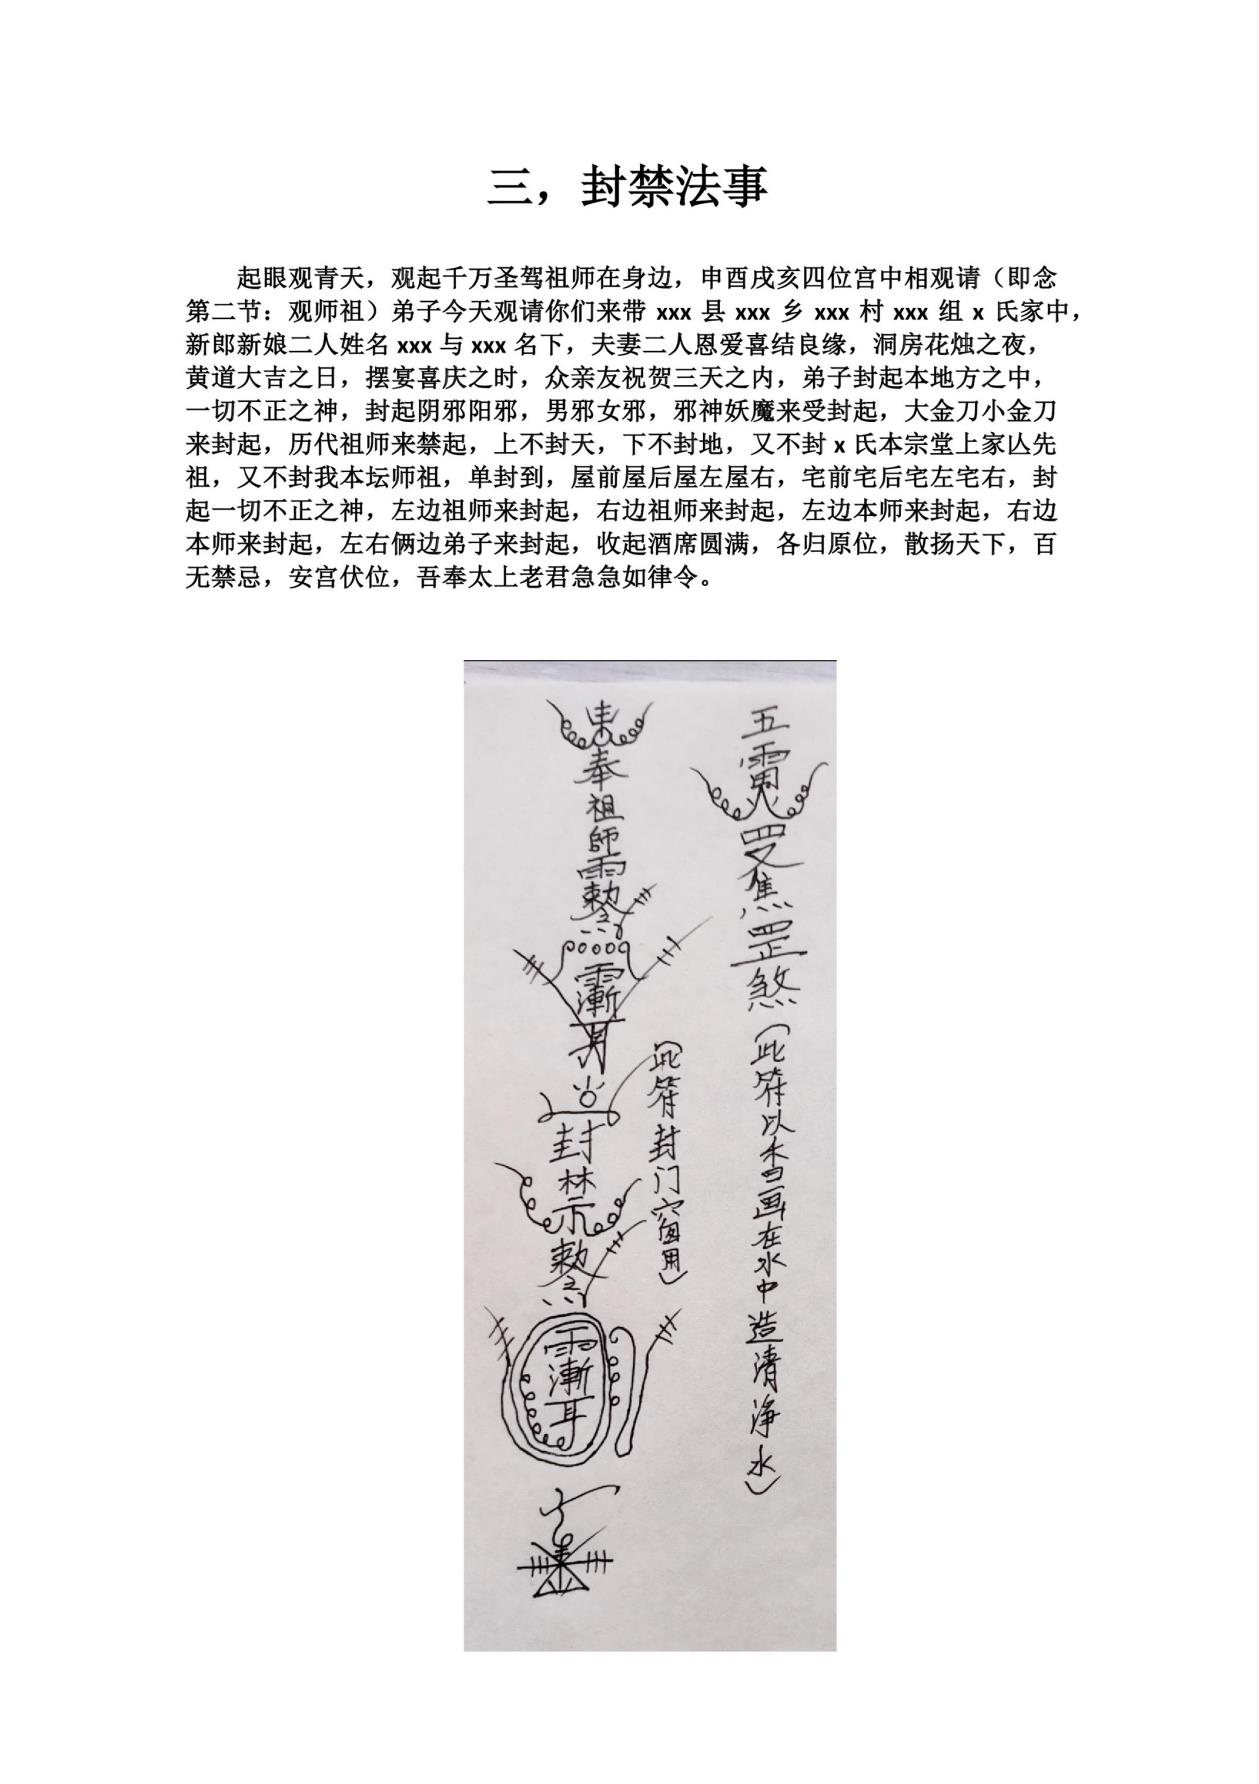 三，封禁法事
起眼观青天，观起千万圣驾祖师在身边，申酉戌亥四位宫中相观请（即念
第二节：观师祖）弟子今天观请你们来带 xxx 县 xxx 乡 xxx 村 xxx 组 x 氏家中，
新郎新娘二人姓名 xxx 与 xxx 名下，夫妻二人恩爱喜结良缘，洞房花烛之夜，
黄道大吉之日，摆宴喜庆之时，众亲友祝贺三天之内，弟子封起本地方之中，
一切不正之神，封起阴邪阳邪，男邪女邪，邪神妖魔来受封起，大金刀小金刀
来封起，历代祖师来禁起，上不封天，下不封地，又不封 x 氏本宗堂上家亾先
祖，又不封我本坛师祖，单封到，屋前屋后屋左屋右，宅前宅后宅左宅右，封
起一切不正之神，左边祖师来封起，右边祖师来封起，左边本师来封起，右边
本师来封起，左右俩边弟子来封起，收起酒席圆满，各归原位，散扬天下，百
无禁忌，安宫伏位，吾奉太上老君急急如律令。
五
煞（此符以香画在水中造清净水）
（此符封门窗用）
奉祖師
封禁